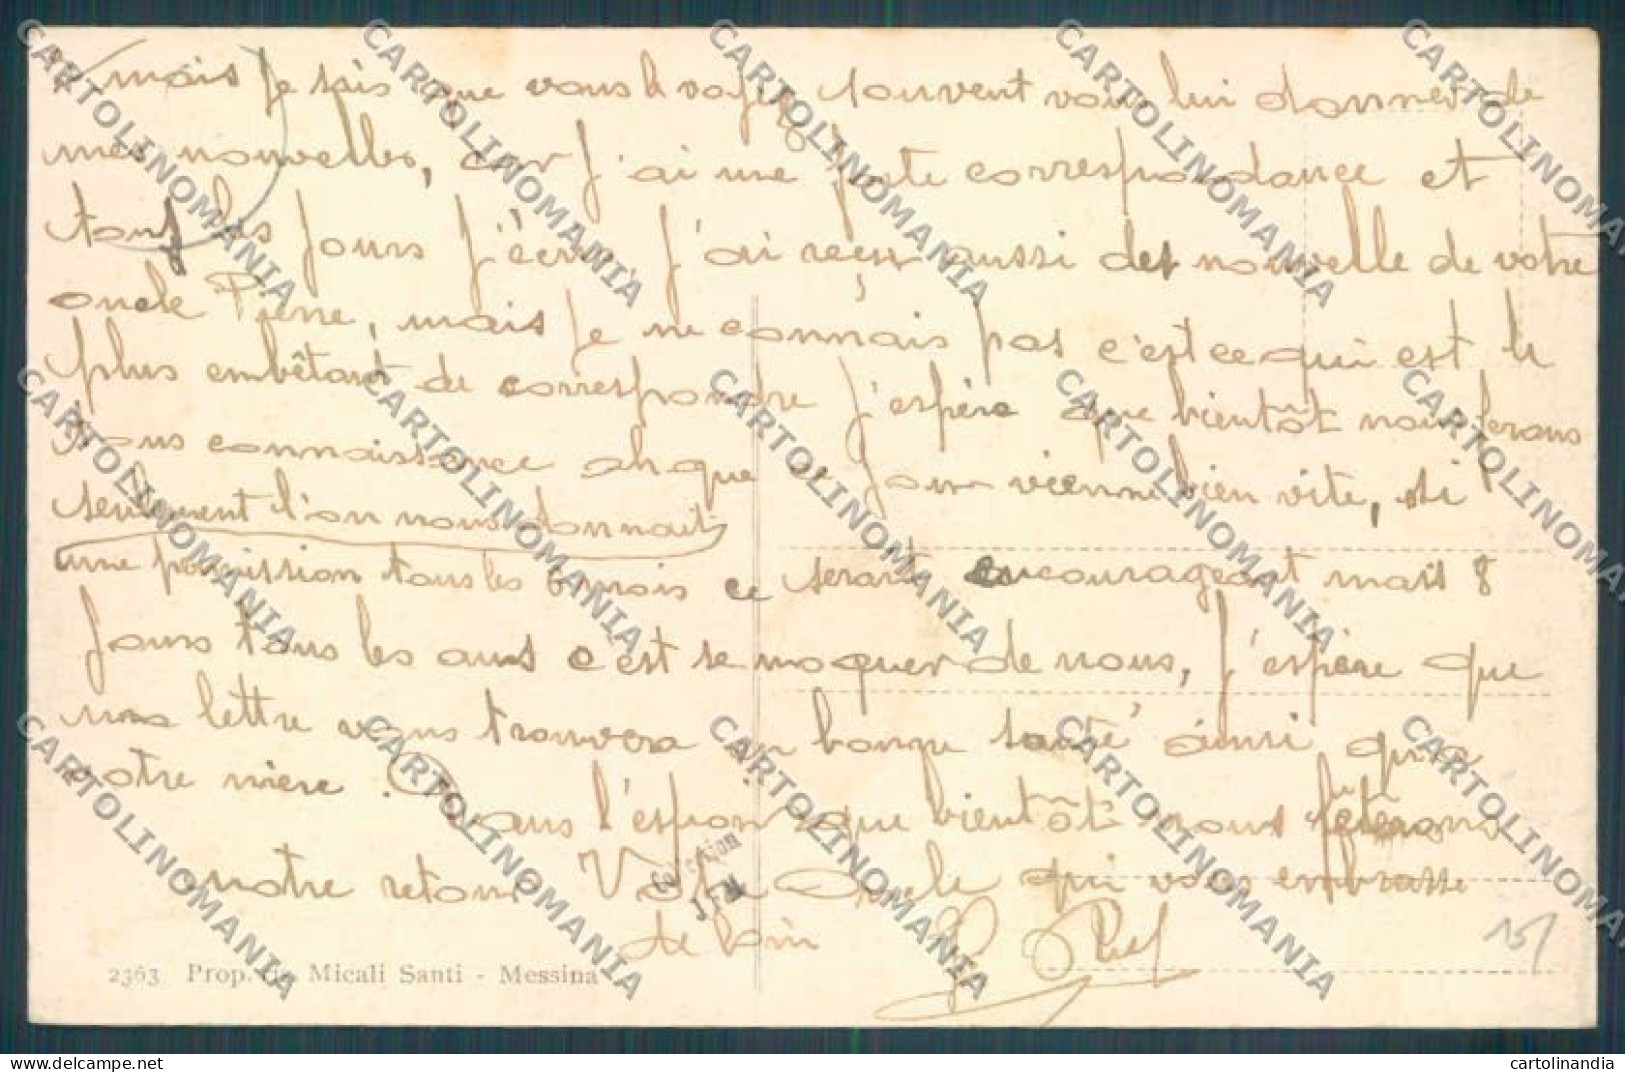 mais je sais que vous le voyez souvent vous lui donner de
mes nouvelles, car j'ai une forte correspondance et
tous les jours j'écris j'ai reçu aussi des nouvelle de votre
oncle Pierre, mais je ne connais pas c'est ce qui est le
plus embêtant de correspondre j'espère que bientôt nous ferons
tous connaissance ah que ce jour vienne bien vite, si
seulement l'on nous donnait
une permission tous les 6 mois ce serait encourageant mais 8
jours tous les ans c'est se moquer de nous, j'espère que
ma lettre vous trouvera en bonne santé ainsi que
votre mère. Dans l'espoir que bientôt nous fêterons
notre retour Votre Oncle qui vous embrasse
de loin
Collection
J.F.M.
2363 Prop. Micali Santi - Messina
CARTOLINOMANIA
www.delcampe.net
cartolinandia